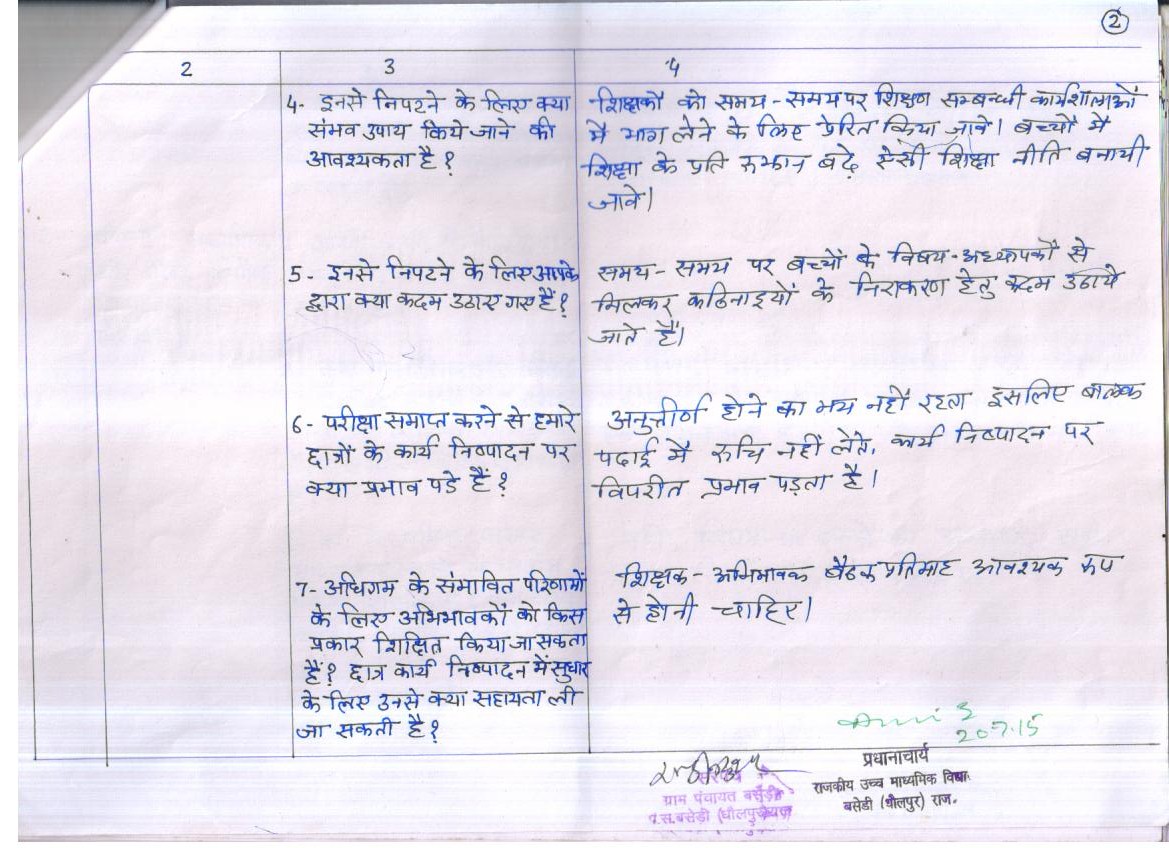 2
2 3 4
4- इनसे निपटने के लिए क्या
संभव उपाय किये जाने की
आवश्यकता है?
शिक्षकों को समय-समय पर शिक्षण सम्बन्धी कार्यशालाओं
में भाग लेने के लिए प्रेरित किया जावे। बच्चों में
शिक्षा के प्रति रुझान बढ़े ऐसी शिक्षा नीति बनायी
जावे।
5- इनसे निपटने के लिए आपके
द्वारा क्या कदम उठाए गए हैं?
समय-समय पर बच्चों के विषय-अध्यापकों से
मिलकर कठिनाइयों के निराकरण हेतु कदम उठाये
जाते हैं।
6- परीक्षा समाप्त करने से हमारे
छात्रों के कार्य निष्पादन पर
क्या प्रभाव पडे हैं?
अनुत्तीर्ण होने का भय नहीं रहता इसलिए बालक
पढाई में रुचि नहीं लेते, कार्य निष्पादन पर
विपरीत प्रभाव पड़ता है।
7- अधिगम के संभावित परिणामों
के लिए अभिभावकों को किस
प्रकार शिक्षित किया जा सकता
है? छात्र कार्य निष्पादन में सुधार
के लिए उनसे क्या सहायता ली
जा सकती है?
शिक्षक-अभिभावक बैठक प्रतिमाह आवश्यक रूप
से होनी चाहिए।
20.7.15
सरपंच
ग्राम पंचायत बसेड़ी
पं.स.बसेडी (धौलपुर)
प्रधानाचार्य
राजकीय उच्च माध्यमिक विद्या
बसेडी (धौलपुर) राज.